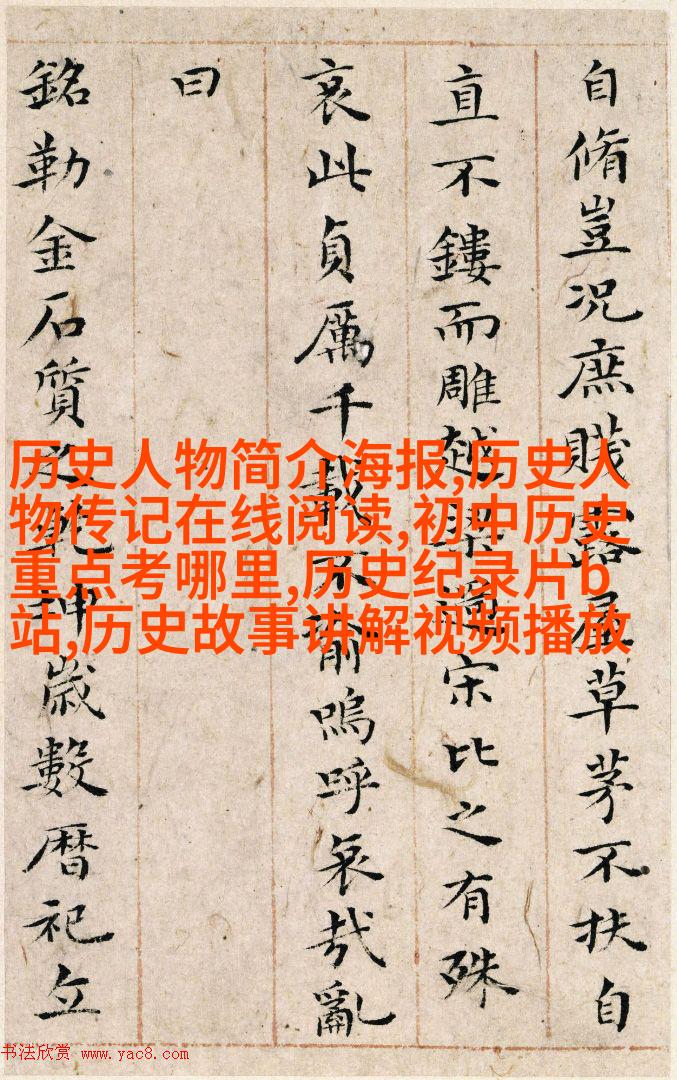 自脩豈況庶賤露屋草茅不扶自
直不鏤而雕越梁過宋比之有殊
哀此貞厲千載不渝嗚呼哀哉亂
曰
銘勒金石質之乾坤歲數暦祀立
历史人物简介海报,历史人
物传记在线阅读,初中历史
重点考哪里,历史纪录片b
站,历史故事讲解视频播放
书法欣赏 www.yac8.com